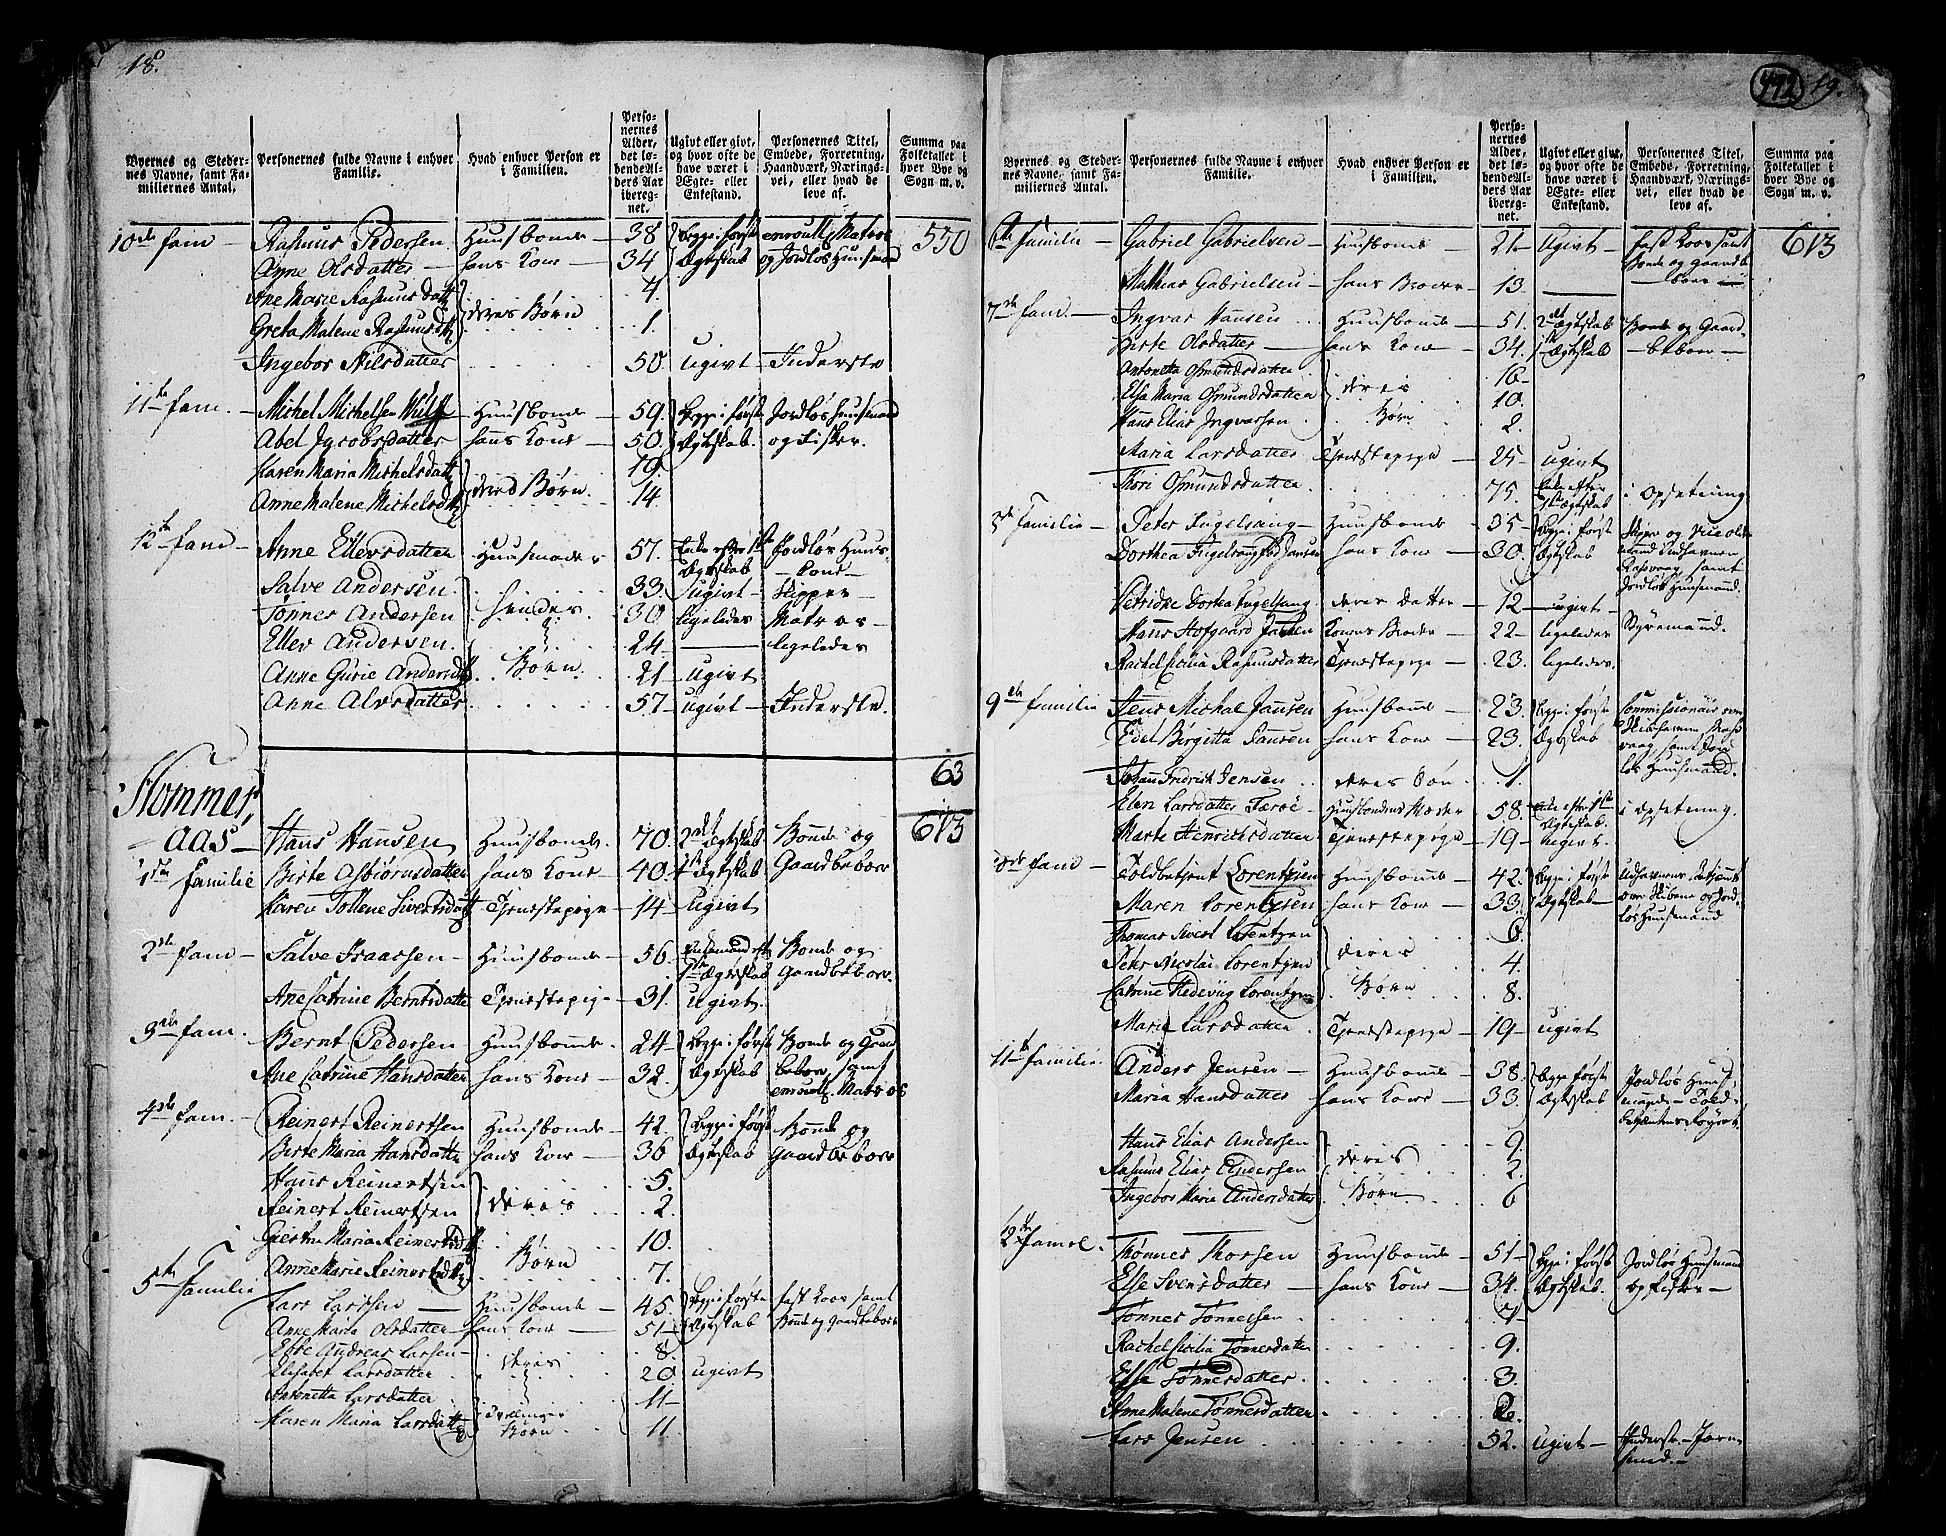 18.
Byernes og Steder-
nes Navne, samt Fa-
miliernes Antal.
Personernes fulde Navne i enhver
Familie.
Hvad enhver Person er
i Familien.
Perso-
nernes
Alder,
det lø-
bende Al-
ders Aar
iberegnet.
Ugivt eller givt,
og hvor ofte de
have været i
Ægte- eller
Enkestand.
Personernes Titel,
Embede, Forretning,
Haandværk, Nærings-
vei, eller hvad de
leve af.
Summa paa
Folketallet i
hver Bye og
Sogn m. v.
10de fam — Rasmus Pedersen Huusbonde 38 Begge i første enroull. Matros 550
Anne Olsdatter — hans Kone 34 Ægteskab og Jordløs Huusmand
Ane Marie Rasmusdatt 4
deres Børn
Greta Malene Rasmusd 1.
Ingebor Nilsdatter 50 ugivt — Inderste
11te fam. — Michel Michelsen Huusbonde 59. Begge i første Jordløs Huusmand
Abel Jacobsdatter hans Kone 50. Ægteskab. og Fisker.
Karen Maria Michelsdatt 19.
deres Børn.
Anne Malene Michelsd 14.
12te fam — Anne Ellevsdatter Huusmoder 57. Enke efter 1ste Jordløs Huus-
Ægteskab — kone —
Salve Andersen. 33. ugivt — Skipper —
Tønnes Andersen hendes 30 ligeledes Matros —
Ellev Andersen. 24 — ligeledes
Anne Gurie Andersd Børn 21 ugivt
Anne Alvsdatter 57 — ugivt — Inderste.
63
613
Flommer,
— aas — Hans Hansen Huusbonde. 70. 2det Ægteskab Bonde og
1ste Familie Birte Asbiørnsdatter hans Kone — 40. 1ste Ægteskab Gaardbeboer
Karen Tollene Sivertsdatt Tjenestepige — 14 — ugivt
2de fam — Salve Isaacsen — Huusbonde — 56. Enkemand efter Bonde og
1ste Ægteskab Gaardbeboer.
Ane Catrine Berntsdatter Tjenestepige — 31. ugivt.
3de fam. Bernt Pedersen Huusbonde. 24 — Begge i første Bonde og Gaard
Ane Catrine Hansdatter hans Kone — 32. Ægteskab beboer, samt
enroull. Matros
4de fam. Reinert Reinertsen Huusbonde — 42. Begge i først Bonde og
Birte Maria Hansdatter hans Kone — 36 Ægteskab Gaardbeboer
Hans Reinertsen 5.
deres
Reinert Reinertsen 2.
Maria Reinertsd 10.
Børn
Anne Marie Reinertsd 7.
5te Familie Lars Larssen — Huusbonde — 45. Begge i første fast Loos samt
Anne Maria Olsdatter — hans Kone — 51 — Ægteskab Bonde og Gaardbeboer
Andreas Larsen — 8.
deres
Elisabet Larsdatter 20 ugivt
Antonetta Larsdatter 11 —
Tvillinger
Karen Maria Larsdatt Børn 11
492 19.
Byernes og Steder-
nes Navne, samt Fa-
miliernes Antal.
Personernes fulde Navne i enhver
Familie.
Hvad enhver Person er
i Familien.
Perso-
nernes
Alder,
det lø-
bende Al-
ders Aar
iberegnet.
Ugivt eller givt,
og hvor ofte de
have været i
Ægte- eller
Enkestand.
Personernes Titel,
Embede, Forretning,
Haandværk, Nærings-
vei, eller hvad de
leve af.
Summa paa
Folketallet i
hver Bye og
Sogn m. v.
6te Familie — Gabriel Gabrielsen — Huusbonde — 21 — ugivt — fast Loos samt 613
Bonde og Gaardbe
Mathias Gabrielsen — hans Broder — 13 — boer —
7de fam. — Ingvar Hansen Huusbonde — 51. 2det Ægteskab Bonde og Gaard-
Birte Olsdatter — hans Kone — 34. 1ste Ægteskab — beboer —
Antonetta Osmundsdatter 16 —
deres
Elsa Maria Osmundsdatter 10.
Hans Elias Ingvarssen Børn 2.
Maria Larsdatter Tjenestepige — 25 — ugivt
Thori Osmundsdatter 75. Enke efter
1ste Ægteskab i Opsetning
Familie — Peter Fugelsang — Huusbonde — 35 — Begge i første
Dorthea Fugelsang fød Jansen hans Kone — 30. Ægteskab
samt
Jordløs Huusmand.
Petridke Dorthea Fugelsang deres Datter — 12 — ugivt —
Hans Hofgaard Jansen Konens Broder — 22 — ligeledes Styremand.
Rachel Cicilia Rasmusdatter Tjenestepige — 23. ligeledes.
9de familie Jens Michal Jansen Huusbonde — 23. Begge i første Commissionair over
Edel Birgitta Jansen hans Kone — 23. Ægteskab
samt Jord
løs Huusmand.
Johan Fridrich Jensen deres Søn 1.
Elen Larsdatter Huusbondens Moder 58. Enke efter 1ste i Opsetning.
Ægteskab.
Marte Henrichsdatter Tjenestepige — 19 — ugivt.
10de fam — Toldbetjent Lorentzen Huusbonde — 42. Begge i første
Maren Lorentzen hans Kone — 33. Ægteskab — og Jord-
løs Huusmand
Thomas Sivert Lorentzen 6.
deres
Peter Nicolai Lorentzen 4.
Catrine Hedevig Lorentzen Børn 8.
Maria Larsdatter Tjenestepige — 19 — ugivt
11te familie. Anders Jensen — Huusbonde — 38. Begge i første Jordløs Huus-
Maria Hansdatter hans Kone — 33. Ægteskab mand — Told-
betjentens
Hans Elias Andersen 9.
deres
Rasmus Elias Andersen 2.
Ingebor Maria Andersdatter Børn 6
12te Tønnes Thorsen Huusbonde — 51 — Begge i første Jordløs Huusmand
Else Svensdatter — hans Kone — 34. Ægteskab. og fisker —
Tønnes Tønnessen 7
Rachel Cicilia Tønnesdatter 9.
Else Tønnesdatter 3.
Anne Malene Tønnesdatter 2.
Lars Jensen 52. ugivt — Inderste —